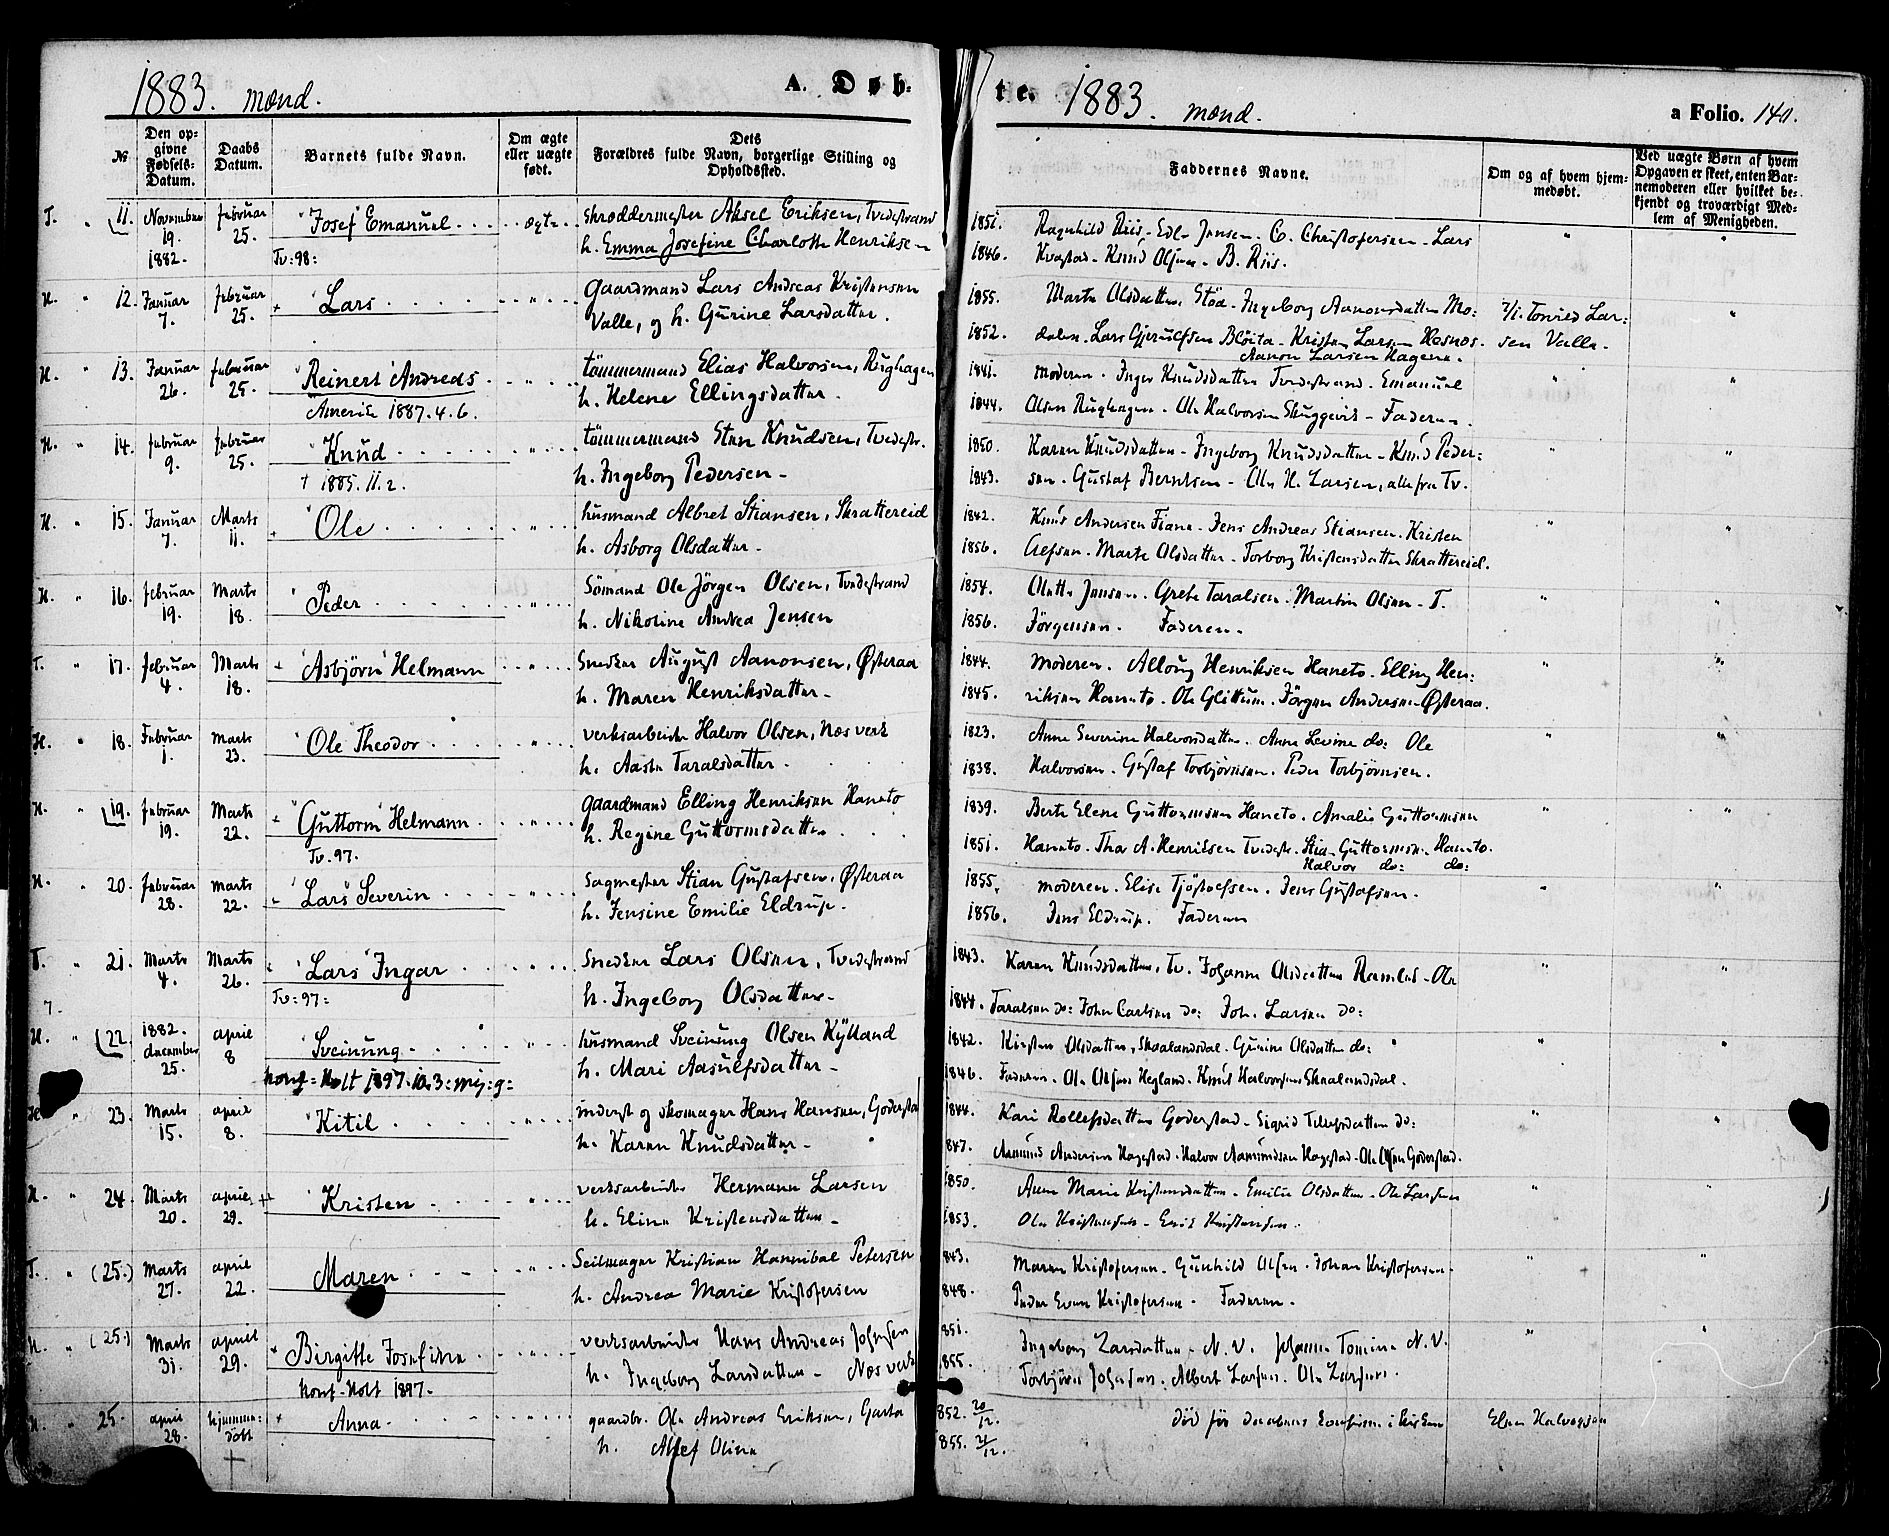 1883. mænd. A. Døb-
№ Den opgivne Fødsels-Datum. Daabs Datum. Barnets fulde Navn. Om ægte eller uægte født. Dets Forældres fulde Navn, borgerlige Stilling og Opholdssted.
T. " 11. November februar "Josef" Emanuel . . . ægte . . Skræddermester Aksel Eriksen, Tvedestrand
19. 25. h. Emma Josefine Charlotte Henriksen
1882. Tv: 98:
H. " 12. Januar februar + "Lars . . . . . " . . gaardmand Lars Andreas Kristensen
7. 25. Valle, og h. Gurine Larsdatter.
H. " 13. Januar februar "Reinert" Andreas . . . " . . tömmermand Elias Halvorsen, Rughagen
26. 25. h. Helene Ellingsdatter.
Amerik 1887. 4. 6.
H. " 14. februar februar "Knud . . . . . " . . tömmermand Sten Knudsen, Tvedestr.
9. 25. h. Ingeborg Pedersen -
† 1885. 11. 2.
H. " 15. Januar Marts "Ole . . . . . " . . husmand Albret Stiansen, Skrattereid
7. 11. h. Asborg Olsdatter -
H. " 16. februar Marts "Peder . . . . . " . . Sömand Ole Jörgen Olsen, Tvedestrand
19. 18. h. Nikoline Andrea Jensen
T. " 17. februar Marts + "Asbjörn" Helmann . . " . . Snedker August Aanonsen, Østeraa
4. 18. h. Maren Henriksdatter -
H. " 18. Februar Marts "Ole Theodor . . . " . . verksarbeider Halvor Olsen, Næs verk
1. 23. h. Aaste Taralsdatter.
H. " 19. februar Marts + "Guttorm" Helmann . . " . . gaardmand Elling Henriksen Haneto
19. 22. h. Regine Guttormsdatter
Tv. 97.
H. " 20. februar marts "Lars" Severin . . . " . . Sagmester Stian Gustafsen, Østeraa
28. 22. h. Jensine Emilie Eldrup.
T. " 21. Marts Marts "Lars" Ingar . . . " . . Snedker Lars Olsen, Tvedestrand
4. 26. h. Ingeborg Olsdatter -
Tv: 97:
H. " 22. 1882. april "Sveinung . . . . " . . husmand Sveinung Olsen Kylland
december 8 h. Mari Aasulfsdatter -
25. konf = Holt 1897. 10. 3: mg: g:
H. " 23. Marts april "Kitil . . . . . " . . inderst og skomager Hans Hansen, Goderstad
15. 8. h. Karen Knudsdatter -
H. " 24. Marts april "Kristen . . . . " . . verksarbeider Hermann Larsen
20. 29. h. Eline Kristensdatter -
T. " (25.) Marts april Maren . . . . " . . Seilmager Kristian Hannibal Petersen
27. 22. h. Andrea Marie Kristofersen
H. (25.) Marts april Birgitte Josefine . . " . . verksarbeider Hans Andreas Johnsen
31. 29. h. Ingeborg Larsdatter - Næs verk
konf-Holt 1897.
H. 25. april hjemme- + Anna . . . . " . . gaardbr. Ole Andreas Eriksen, Garta
28. döbt h. Alfef Oline
†
te. 1883. mænd. a Folio. 140.
Faddernes Navne. Om og af hvem hjemmedøbt. Ved uægte Børn af hvem Opgaven er skeet, enten Barnemoderen eller hvilket bekjendt og troværdigt Medlem af Menigheden.
1851. Ragnhild Riis - Edle Jensen - C. Christofersen - Lars " "
1846. Kvastad - Knud Olsen - B. Riis.
1855. Marte Olsdatter, Stöa - Ingeborg Aanonsdatter Mo: 7/1. Tomine Lar: "
1852. dalen - Lars Gjerulfsen Blöita - Kristen Larsen Røsnes. sen Valle.
Aanon Larsen Hagene.
1841. moderen. Inger Knudsdatter Tvedestrand - Emanuel " "
1844. Olsen Rughagen. Ole Halvorsen Skuggevik - Faderen.
1850. Karen Knudsdatter - Ingeborg Knudsdatter - Knud Peder: " "
1843. sen - Gustaf Berntsen - Ole H. Larsen, alle fra Tv.
1842. Knud Andersen Fiane - Jens Andreas Stiansen - Kristen " "
1856. Clefsen - Marte Olsdatter - Torborg Kristensdatter Skrattereid.
1854. Olette Jensen - Grete Taralsen - Martin Olsen - T. " "
1856. Jörgensen. Faderen.
1844. moderen. Alloug Henriksen Haneto. Elling Hen: " "
1845. riksen Haneto - Ole Glittum. Jörgen Andersen Østeraa.
1823. Anne Severine Halvorsdatter. Anne Levine do: Ole " "
1838. Halvorsen. Gustaf Torbjörnsen. Peder Torbjörnsen.
1839. Berte Elene Guttormsen Haneto. Amalie Guttormsen " "
1851. Haneto. Thor A. Henriksen Tvedestr. Stian Guttormsen Haneto.
Halvor do: do:
1855. moderen. Elise Tjöstolfsen. Jens Gustafsen. " "
1856. Jens Eldrup. Faderen
1843. Karen Knudsdatter, Tv. Johanne Olsdatter Ramlid - Ole " "
1844. Taralsen do: John Carlsen do: Joh. Larsen do:
1842. Kirsten Olsdatter, Skaalandsdal. Gurine Olsdatter do: " "
1846. Faderen. Ole Olsen Hegland. Knut Halvorsen Skaalandsdal.
1844. Kari Rollefsdatter Goderstad - Sigrid Tellefsdatter do: " "
1847. Aamund Andersen Hagestad. Halvor Aamundsen Hagestad. Ole Olsen Goderstad.
1850. Anne Marie Kristensdatter - Emilie Olsdatter - Ole Larsen " "
1853. Ole Kristensen - Erik Kristensen.
843. Maren Kristofersen - Gunhild Olsen. Johan Kristofersen. " "
848. Peder Even Kristofersen - Faderen.
851. Ingeborg Larsdatter - N. V. Johanne Tomine N. V. " "
855. Torbjörn Johnsen. Albert Larsen. Ole Larsen.
852. 20/12. död för daabens bekræftelse i kirken Elen Halvorsen
855. 21/12.